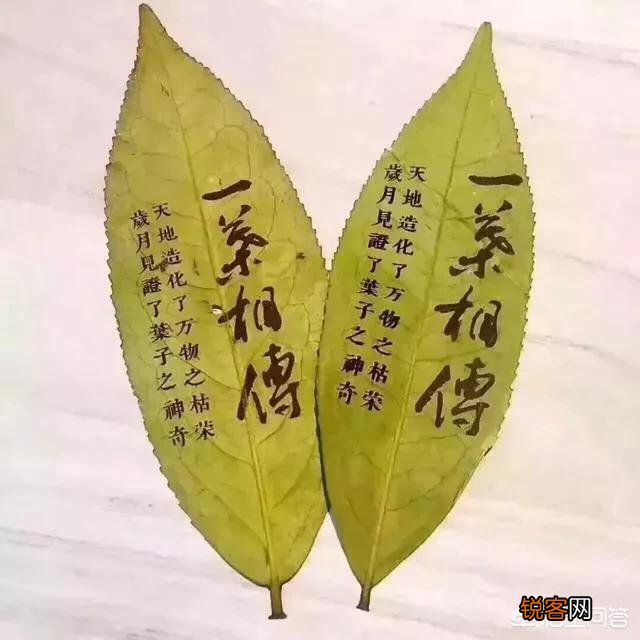 一葉相傳
天地造化了万物之枯荣
歲月見證了葉子之神奇
一葉相傳
天地造化了万物之枯荣
歲月見證了葉子之神奇
锐客网
问答